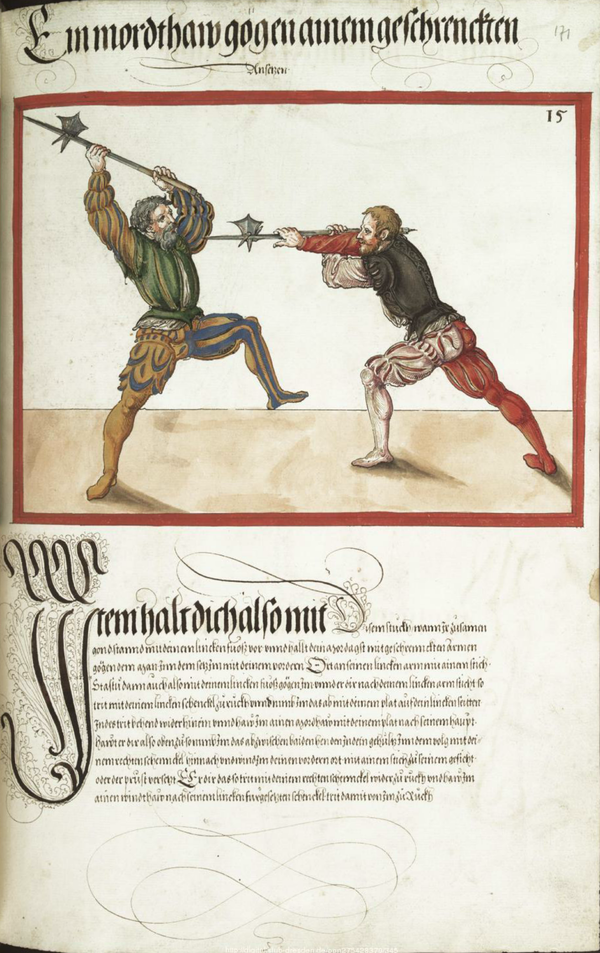 Ein mordthaw gögen ainem geschrenckten
171
Ansetzen
15
Item halt dich also mit Disem stuckh wann Ir zůsamen
gond stannd mit deinem lincken fuosz vor vnnd halt dein axt mit geschrennckten armen
gögen dem man Im dem setz Im mit deinem vorderen Ort an seinen lincken arm mit ainem stich
Stastu dann auch also mit deinem lincken fuosz gögen Im vnnd er dir nach deinem lincken arm sticht so
trit mit deinem lincken schenckel zurückh vnnd nimb Im das ab mit deinem plat auf dein lincken seitten
Indes trit behend wider hinein vnnd haw Im ainen mordthaw mit deinem plat nach seinem haupt
hawt er dir also oben zů so nimb Im das ab zwischen baiden henden In dein gehültz Im dem volg mit dei
nem rechten schennckel hinnach vnd winndt Im deinen vordern ort mit ainem stich zů seinem gesicht
oder der prust versetzt Er dir das so trit mit deinem rechten schennckel wider zů ruckh vnd haw Im
ainen windthaw nach seinem lincken fürgesetzten schenckel trit damit von Im zů Rückh